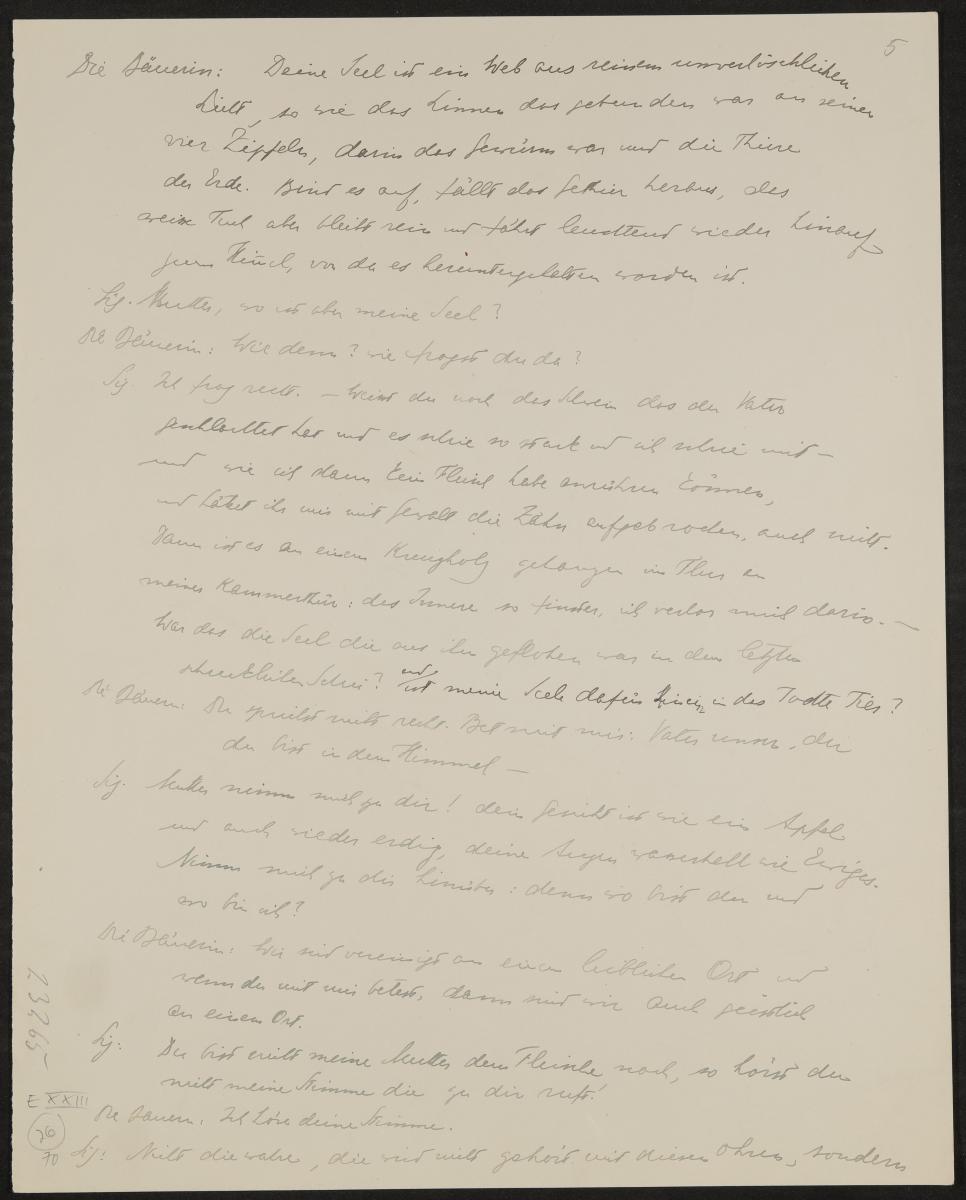 5
Die Bäuerin: Deine Seel ist ein Web aus reinem unverlöschlichen
Licht, so wie das Linnen das gebunden war an seinen
vier Zipfeln, darin das Gewürm war und die Thiere
der Erde. Bind es auf, fällt das Gethier heraus, das
weisse Tuch aber bleibt rein und fährt leuchtend wieder hinauf
zum Himmel, von da es heruntergehalten worden ist.
Sig. Mutter, wo ist aber meine Seel?
Die Bäuerin: Wie denn? wie fragst du da?
Sig. Ich frag recht. – Weisst du noch das Schwein das der Vater
geschlachtet hat und es schrie so stark und ich schrie mit –
und wie ich dann kein Fleisch habe anrühren können,
und hättet ihr mir mit Gewalt die Zähn aufgebrochen, auch nicht.
Dann ist es an einem Kreuzholz gehangen im Flur an
meiner Kammerthür: das Innere so finster, ich verlor mich darin. –
War das die Seel die aus ihm geflohen war in dem letzten
schrecklichen Schrei? und ist meine Seele dafür hinein in das Todte Tier?
Die Bäuerin: Du sprichst nicht recht. Bet mit mir: Vater unser, der
du bist in dem Himmel –
Sig. Mutter nimm mich zu dir! dein Gesicht ist wie ein Apfel
und auch wieder erdig, deine Augen wasserhell wie Ewiges.
Nimm mich zu dir hinüber: denn wo bist du und
wo bin ich?
Die Bäuerin: Wir sind vereinigt an einem leiblichen Ort und
wenn du mit mir betest, dann sind wir auch geistlich
an einem Ort.
Sig: Du bist nicht meine Mutter dem Fleische nach, so hörst du
nicht meine Stimme die zu dir ruft!
Die Bäuerin: Ich höre deine Stimme.
Sig: Nicht die wahre, die wird nicht gehört mit diesen Ohren, sondern
E XXIII
26
70